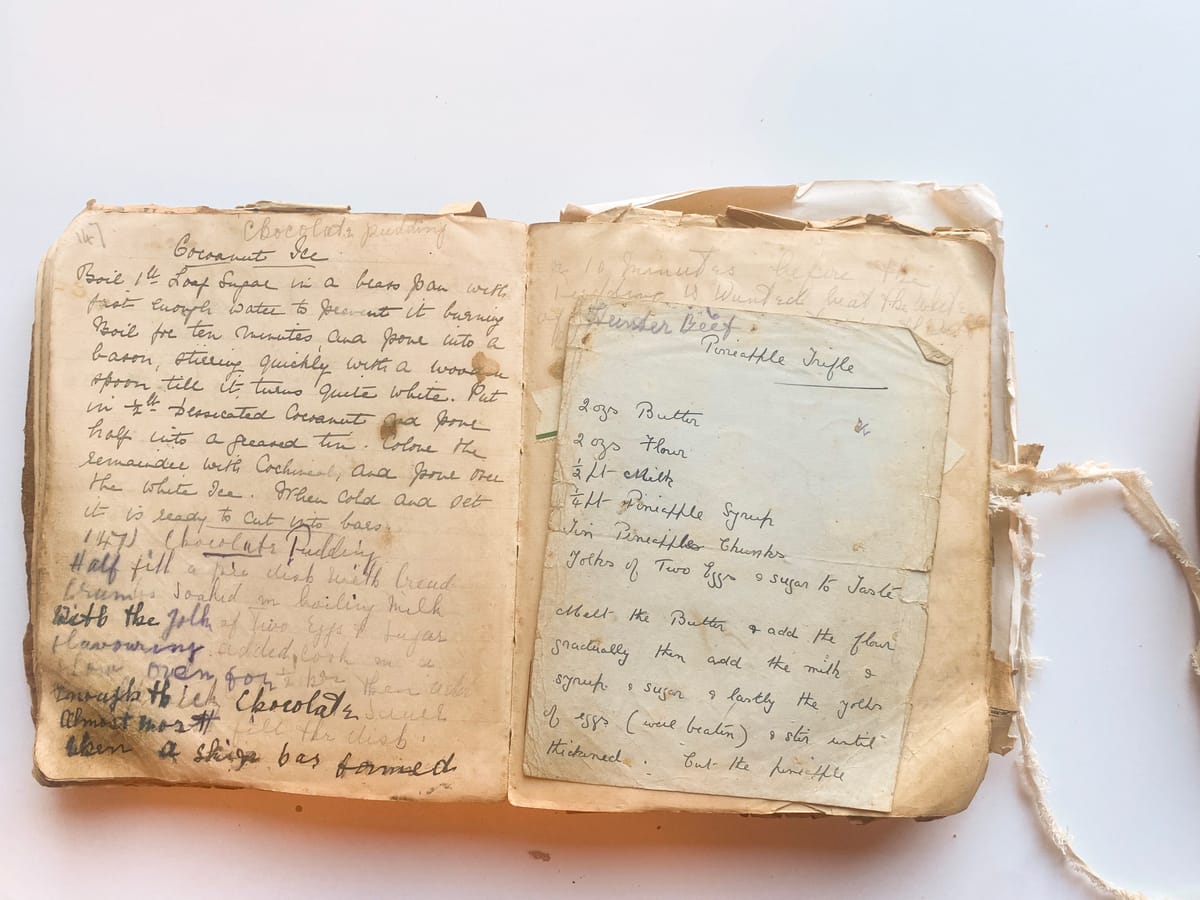 147
Chocolate pudding
Cocoanut Ice
Boil 1lb Loaf Sugar in a brass pan with
just enough water to prevent it burning
Boil for ten minutes and pour into a
bason, stirring quickly with a wooden
spoon till it turns quite white. Put
in ½lb Dessicated Cocoanut and pour
half into a greased tin. Colour the
remainder with Cochineal, and pour over
the white Ice. When cold and set
it is ready to cut into bars.
147) Chocolate Pudding
Half fill a pie dish with bread
crumbs soaked in boiling milk
With the yolk of two Eggs & sugar
flavouring added, cook in a
slow oven for
Enough thick Chocolate
Almost fill the dish.
When a skin has formed
10 minutes before the
pudding is wanted beat the
Hunter Beef
Pineapple Trifle
2 ozs Butter
2 ozs Flour
½ pt Milk
¼ pt Pineapple Syrup
Tin Pineapple Chunks
Yolks of Two Eggs & sugar to Taste
Melt the Butter & add the flour
gradually then add the milk &
syrup & sugar & lastly the yolks
of eggs (well beaten) & stir until
thickened. Cut the pineapple